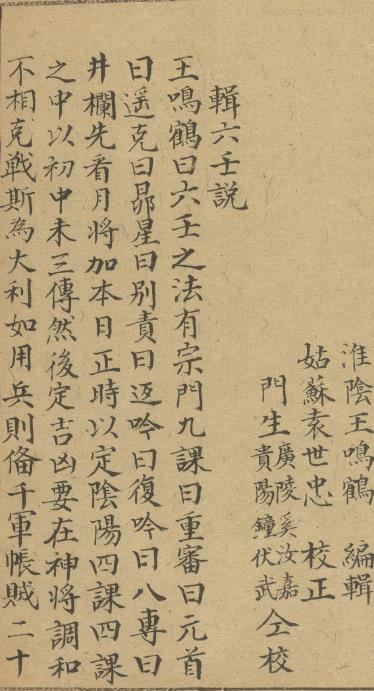 淮陰王鳴鶴　編輯
姑蘇袁世忠　校正
門生廣陵奚汝嘉
貴陽鐘伏武仝校
輯六壬説
王鳴鶴曰六壬之法有宗門九課曰重審曰元首
曰遥克曰昴星曰别責曰返吟曰復吟曰八專曰
井欄先看月將加本日正時以定陰陽四課四課
之中以初中末三傳然後定吉凶要在神將調和
不相克戰斯為大利如用兵則偹千軍帳賊二十